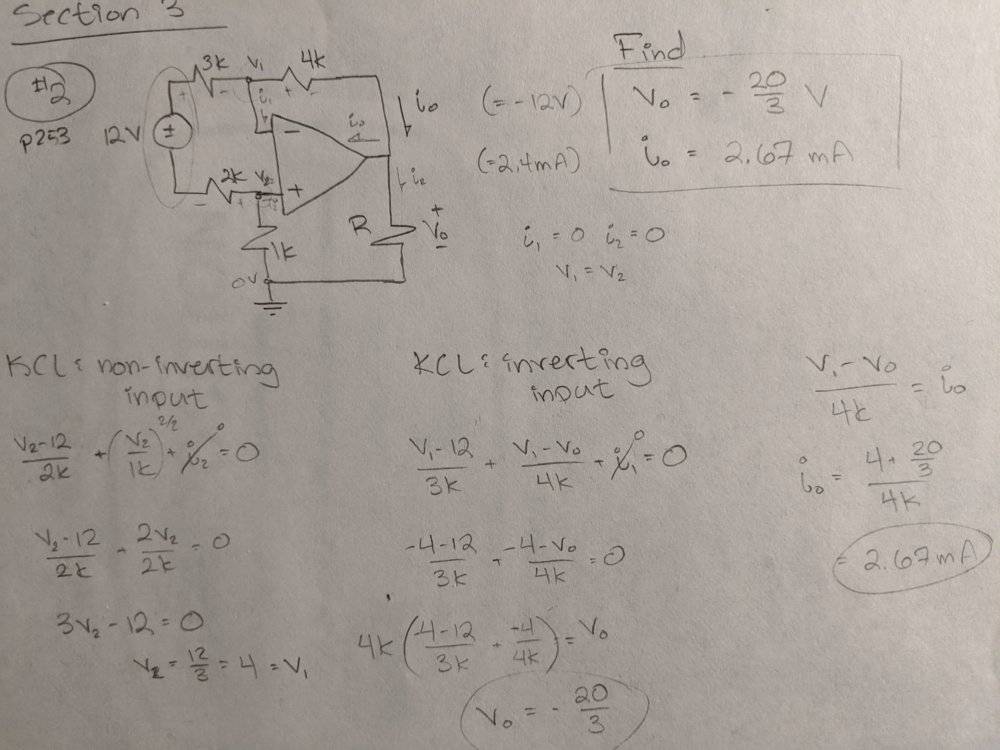 Section 3
#2
p253
12V
3k
V₁
4k
i₁
i₀
i₀
2k
V₂
i₂
1k
R
+
V₀
-
0V
Find
(= -12V)
V₀ = - 20/3 V
(=2.4mA)
i₀ = 2.67 mA
i₁ = 0 i₂ = 0
V₁ = V₂
KCL: non-inverting
input
(V₂-12)/2k + (V₂/1k)^2/2 + i₂ 0 = 0
(V₂-12)/2k + 2V₂/2k = 0
3V₂ - 12 = 0
V₂ = 12/3 = 4 = V₁
KCL: inverting
input
(V₁-12)/3k + (V₁-V₀)/4k + i₁ 0 = 0
(4-12)/3k + (4-V₀)/4k = 0
4k((4-12)/3k + 4/4k) = V₀
V₀ = - 20/3
(V₁-V₀)/4k = i₀
i₀ = (4+20/3)/4k
= 2.67mA